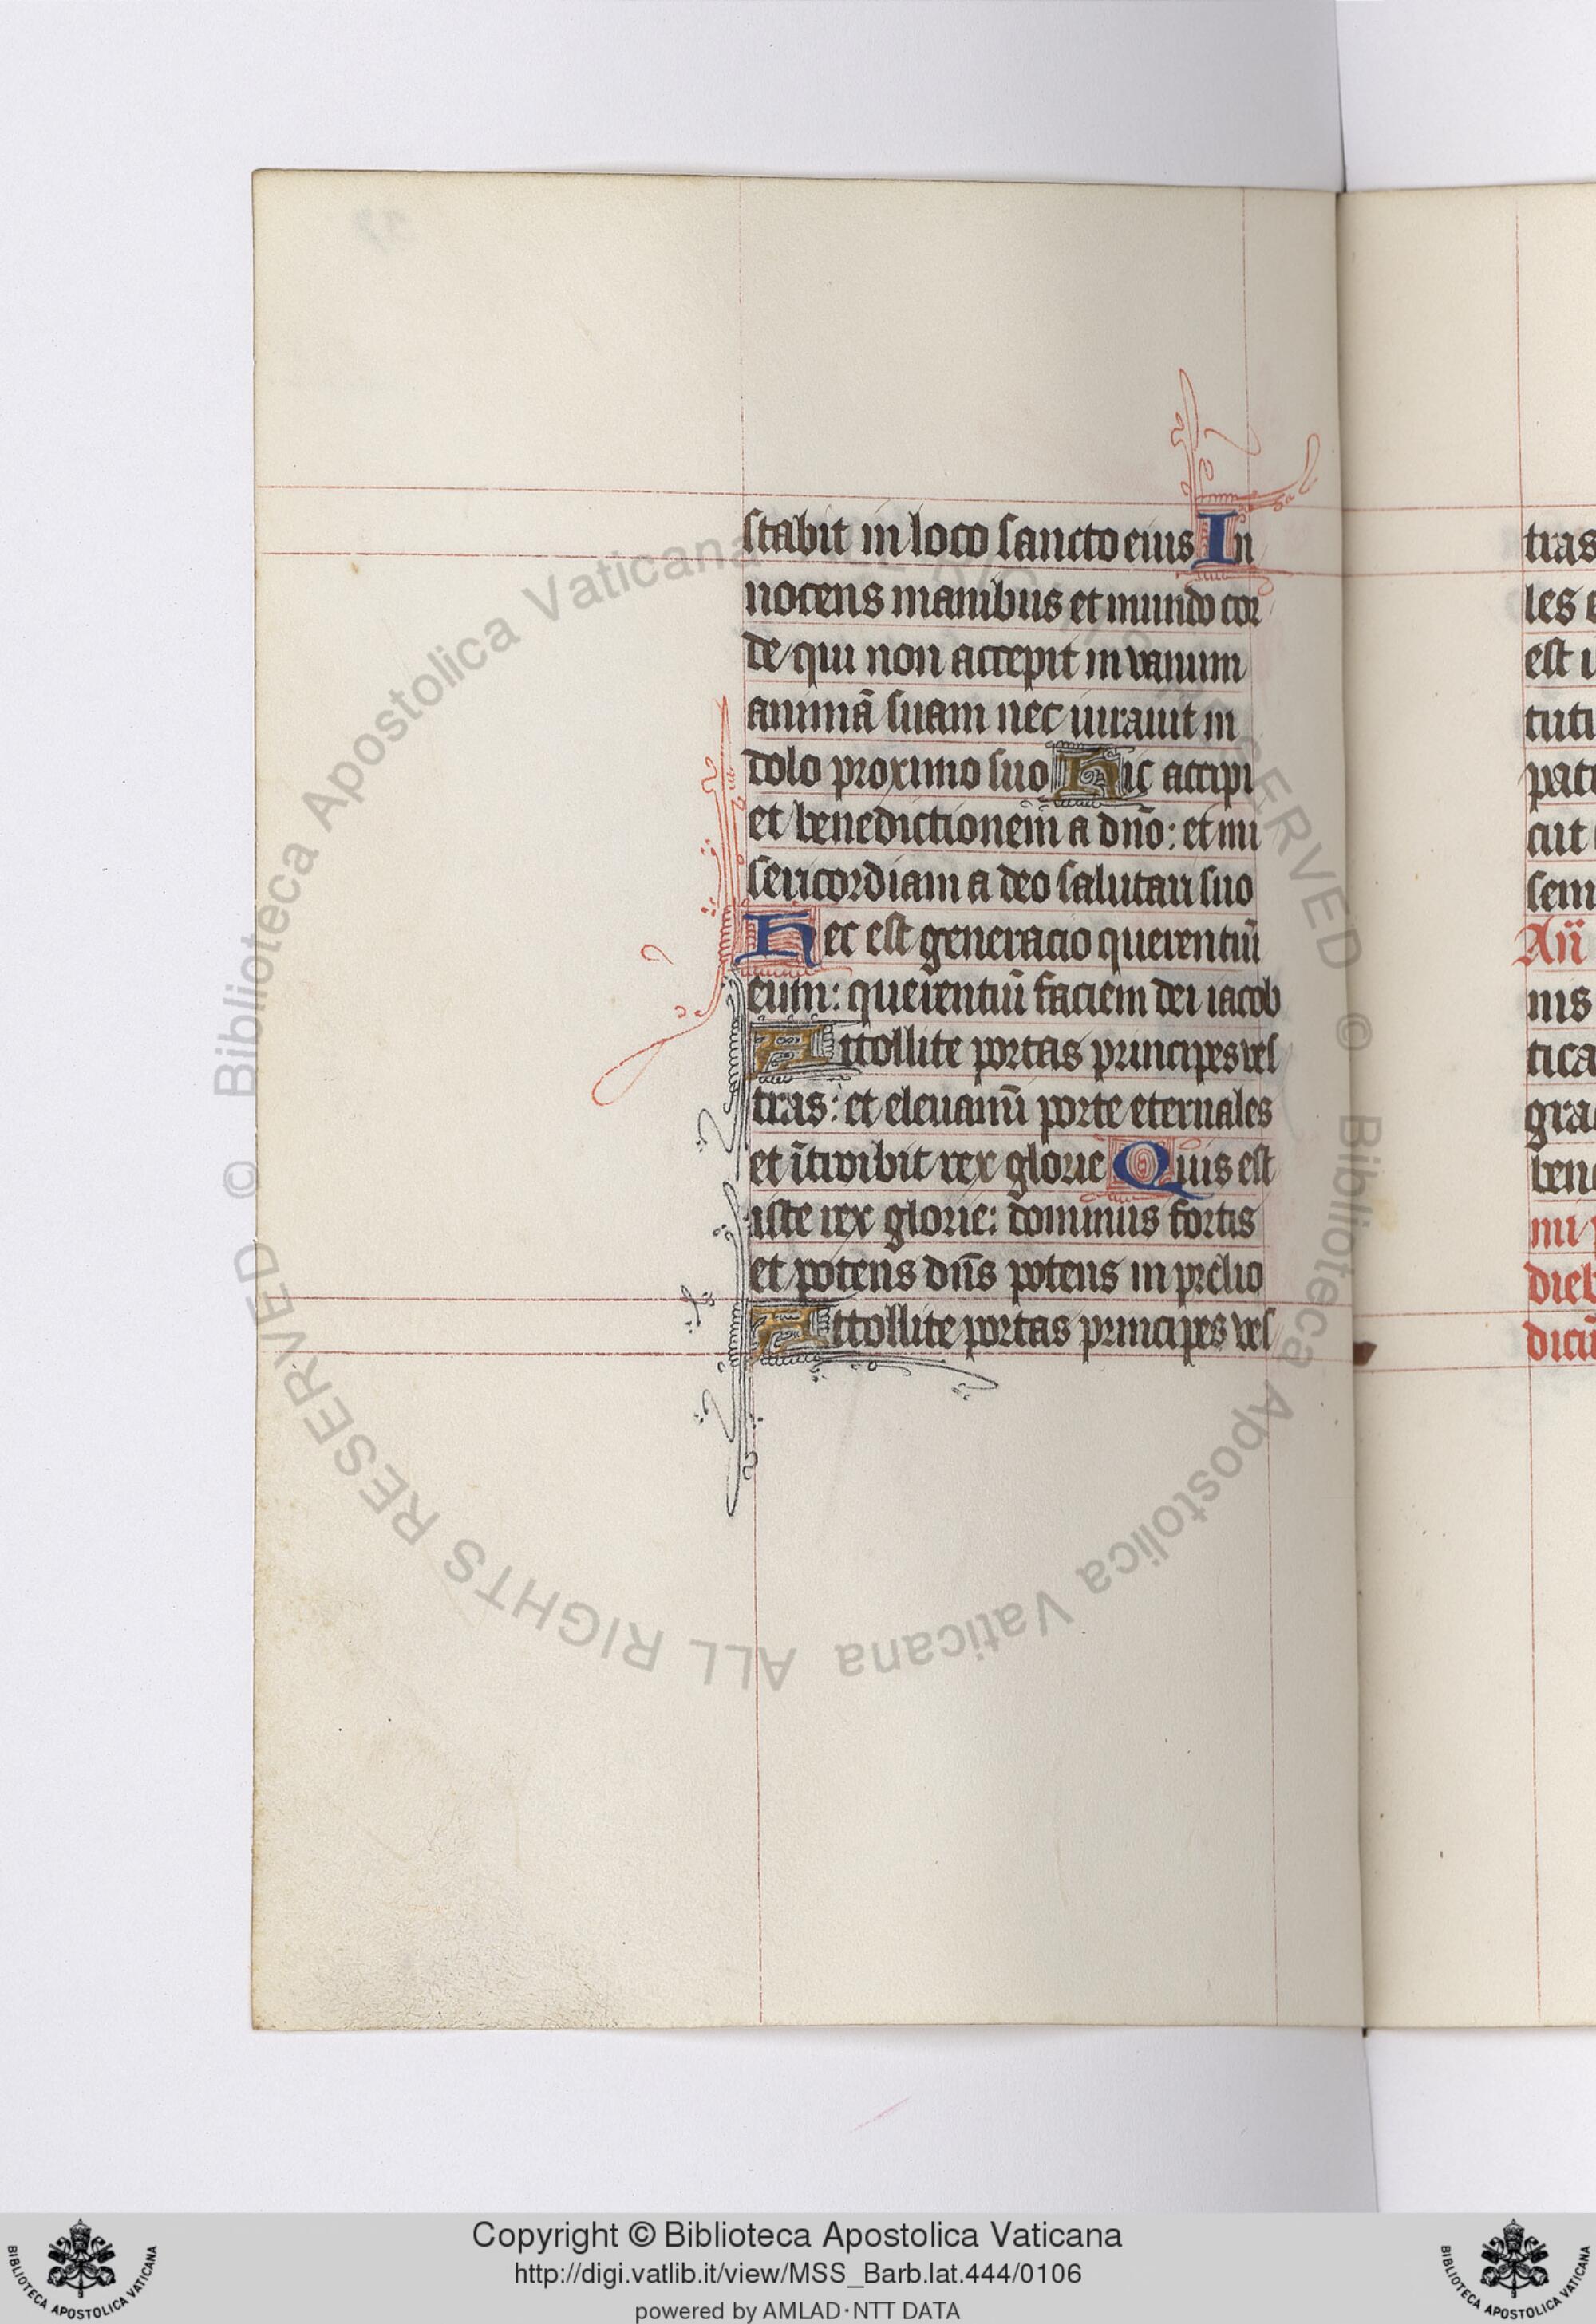 stabit in loco sancto eius In
nocens manibus et mundo cor
de qui non accepit in vanum
animā suam nec iurauit in
dolo proximo suo Hic accipi
et benedictionem a dño: et mi
sericordiam a deo salutari suo
Hec est generacio querentiū
eum: querentiū faciem dei iacob
Attollite portas principes ves
tras: et eleuamī porte eternales
et ītroibit rex glorie Quis est
iste rex glorie: dominus fortis
et potens dñs potens in prelio
Attollite portas principes ves
tras
les
est
tuti
cut
sem
nis
tica
gra
bene
dieb
© Biblioteca Apostolica Vaticana ALL RIGHTS RESERVED © Biblioteca Apostolica Vaticana ALL RIGHTS RESERVED
Copyright © Biblioteca Apostolica Vaticana
http://digi.vatlib.it/view/MSS_Barb.lat.444/0106
powered by AMLAD·NTT DATA
BIBLIOTECA APOSTOLICA VATICANA
BIBLIOTECA APOSTOLICA VATICANA